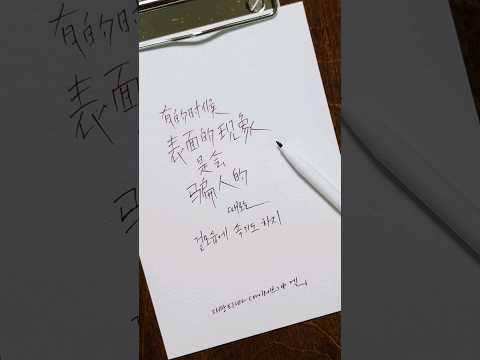 有的时候
表面的现象
是会
骗人的
때로는
겉모습에 속기도 하지